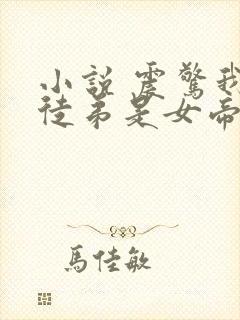 小説 震驚我
徒弟是女帝
馬佳敏